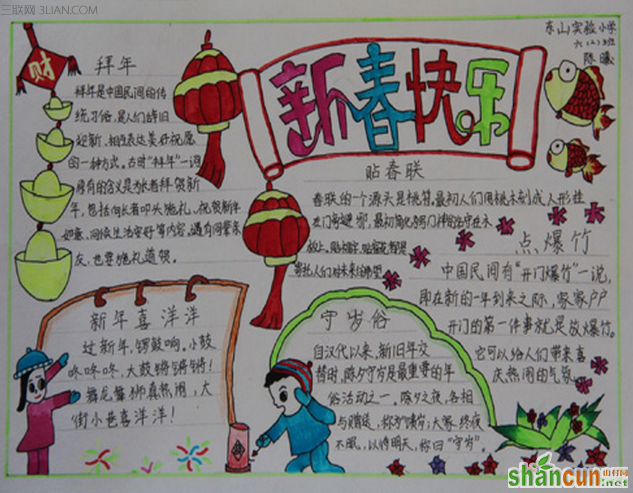 三联网 3LIAN.COM
东山实验小学
六（2）班
陈曦
财
新春快乐
拜年
拜年是中国民间的传
统习俗，是人们辞旧
迎新、相互表达美好祝愿
的一种方式。古时"拜年"一词
原有的含义是为长者拜贺新
年，包括向长者叩头施礼、祝贺新年
如意、问候生活安好等内容。遇有同辈亲
友，也要施礼道贺。
贴春联
春联的一个源头是桃符。最初人们用桃木刻成人形挂
在门旁避邪，
寄托人们对未来的希望
点爆竹
中国民间有"开门爆竹"一说，
即在新的一年到来之际，家家户户
开门的第一件事就是放爆竹。
它可以给人们带来喜
庆热闹的气氛
新年喜洋洋
过新年，锣鼓响。小鼓
咚咚咚，大鼓锵锵锵！
舞龙舞狮真热闹，大
街小巷喜洋洋！
守岁俗
自汉代以来，新旧年交
替时，除夕守岁是最重要的年
俗活动之一。除夕之夜，各相
与赠送，称为"馈岁；大家终夜
不眠，以待明天，称曰"守岁"。
shancun
山村网
.net